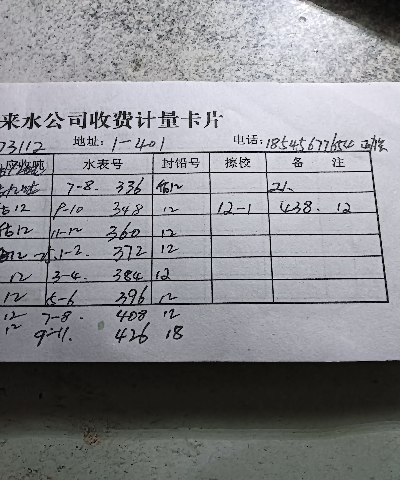 来水公司收费计量卡片
73112 地址: 1-401 电话: 18545677654
水表号 封铅号 擦铰 备 注
7-8. 336 估12 21.
估12 9-10 348 12 12-1 438. 12
估12 11-12 360 12
1-2. 372 12
12 3-4. 384 12
12 5-6 396 12
12 7-8 408 12
12 9-11. 426 18